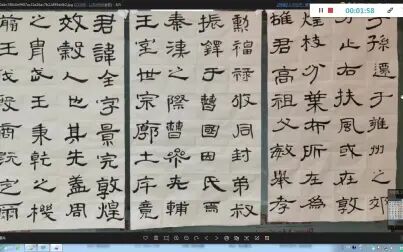 00:01:58
君諱全字景完敦煌
效穀人也其先蓋周
之胄武王秉乾之機
翦伐殷商既定爾
勳福祿攸同封弟叔
振鐸于曹國因氏焉
秦漢之際曹參夾輔
王室世宗廓土斥竟
子孫遷于雍州之郊
分止右扶風或在敦
煌枝分葉布所在為
雄君高祖父敏舉孝